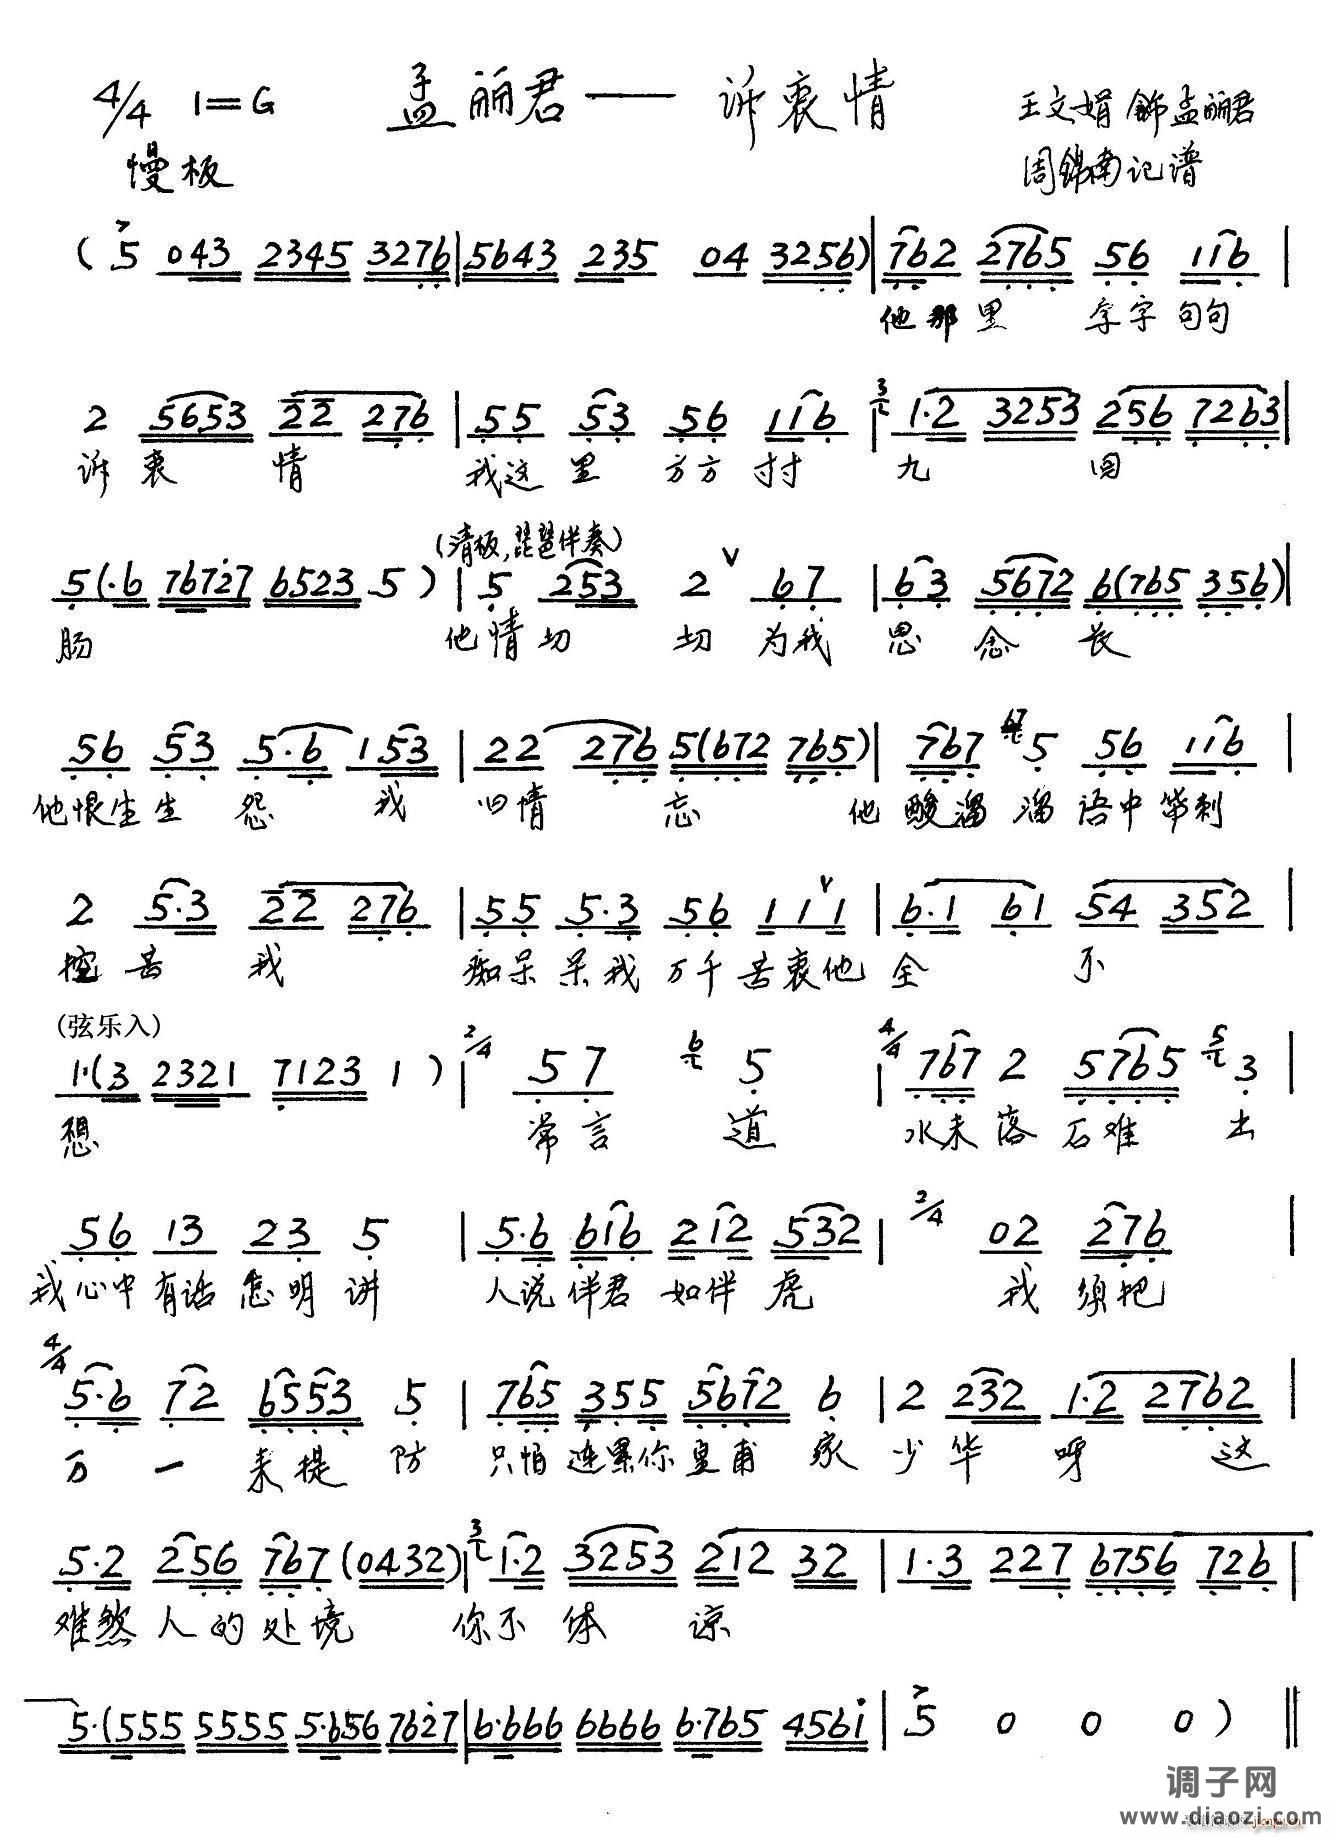 4/4 1=G 孟丽君——诉衷情 王文娟 饰孟丽君
慢板 周锦南记谱
( 5 043 2345 3276 | 5643 235 04 3256 ) | 762 2765 56 116 |
他那里 字字句句
2 5653 22 276 | 55 53 56 116 | 1·2 3253 256 7263 |
诉衷情 我这里 方方寸寸 九回
(清板,琵琶伴奏)
5(·6 76727 6523 5 ) | 5 253 2 67 | 63 5672 6(765 356) |
肠 他情切切为我 思念长
56 53 5·6 153 | 22 276 5(672 765) | 767 5 56 116 |
他恨生生怨我 旧情忘 他酸溜溜语中带刺
2 5·3 22 276 | 55 5·3 56 111 | 6·1 61 54 352 |
挖苦我 痴呆呆我万千苦衷他全不
(弦乐入)
1·(3 2321 7123 1 ) | 2/4 57 5 | 4/4 767 2 5765 3 |
想 常言道 水未落石难出
56 13 23 5 | 5·6 616 212 532 | 2/4 02 276
我心中有话怎明讲 人说伴君如伴虎 我须把
4/4
5·6 72 6553 5 | 765 355 5672 6 | 2 232 1·2 2762 |
万一来提防 只怕连累你皇甫家 少华呀 这
5·2 256 767 (0432) | 1·2 3253 212 32 | 1·3 227 6756 726 |
难煞人的处境 你不体谅
5·(555 5555 5·656 7627 | 6·666 6666 6·765 4561 | 5 0 0 0 ) ‖
调子网
www.diaozi.com